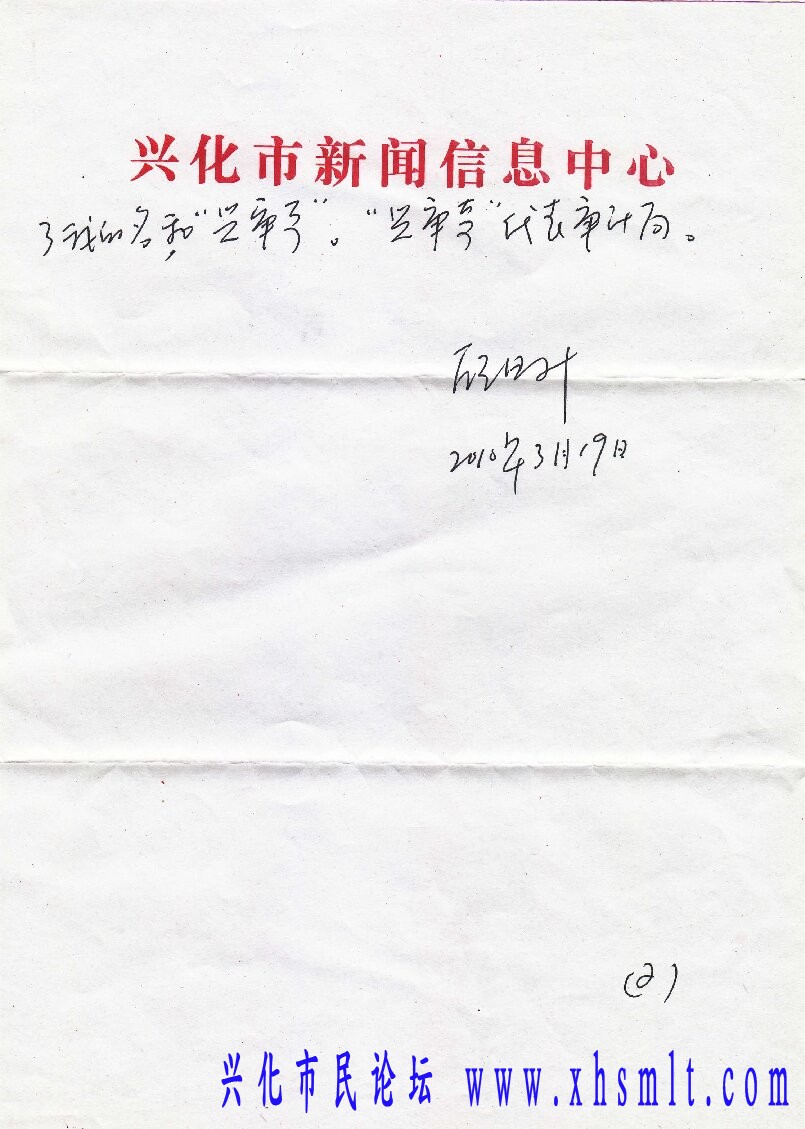 兴化市新闻信息中心
了我的名和“兴审亭”。“兴审亭”代表审计局。
2010年3月19日
(2)
兴化市民论坛 www.xhsmlt.com